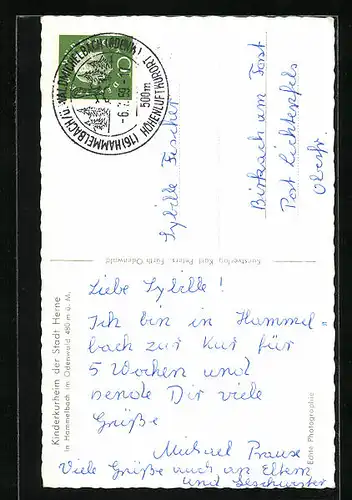 WALD-MICHELBACH (ODENW)
(16) HAMMELBACH
HÖHENLUFTKURORT
500m
-6.
Sybille Fischer
Birkach am Forst
Post Lichtenfels
Oberfr.
Kunstverlag Kurt Peters, Fürth Odenwald
Kinderkurheim der Stadt Herne
in Hammelbach im Odenwald 480 m ü. M.
Liebe Sybille!
Ich bin in Hammel=
bach zur Kur für
5 Wochen und
sende Dir viele
Grüße
Michael Prause
Viele Grüße auch an Eltern
und Geschwister
Echte Photographie